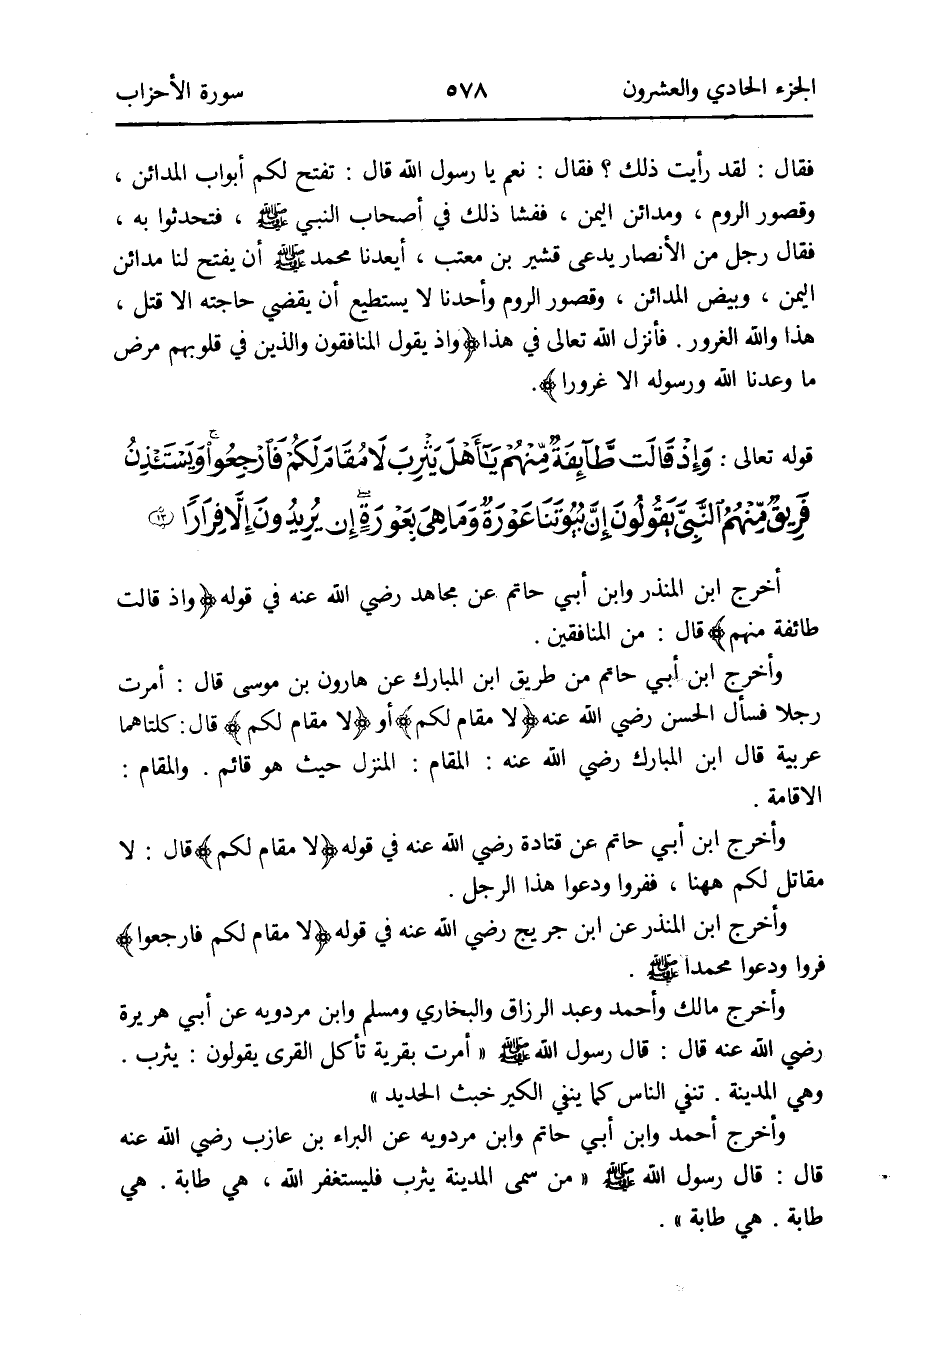 الجزء الحادي والعشرون ٥٧٨ سورة الأحزاب
فقال : لقد رأيت ذلك ؟ فقال : نعم يا رسول الله قال : تفتح لكم أبواب المدائن ،
وقصور الروم ، ومدائن اليمن ، ففشا ذلك في أصحاب النبي ﷺ ، فتحدثوا به ،
فقال رجل من الأنصار يدعى قشير بن معتب ، أيعدنا محمد ﷺ أن يفتح لنا مدائن
اليمن ، وبيض المدائن ، وقصور الروم وأحدنا لا يستطيع أن يقضي حاجته الا قتل ،
هذا والله الغرور . فأنزل الله تعالى في هذا ﴿واذ يقول المنافقون والذين في قلوبهم مرض
ما وعدنا الله ورسوله الا غرورا﴾.
قوله تعالى : وَإِذْ قَالَت طَّآئِفَةٌ مِّنْهُمْ يَٰٓأَهْلَ يَثْرِبَ لَا مُقَامَ لَكُمْ فَٱرْجِعُوا۟ ۚ وَيَسْتَـْٔذِنُ
فَرِيقٌ مِّنْهُمُ ٱلنَّبِىَّ يَقُولُونَ إِنَّ بُيُوتَنَا عَوْرَةٌ وَمَا هِىَ بِعَوْرَةٍ ۖ إِن يُرِيدُونَ إِلَّا فِرَارًا ١٣
أخرج ابن المنذر وابن أبي حاتم عن مجاهد رضي الله عنه في قوله ﴿واذ قالت
طائفة منهم﴾ قال : من المنافقين .
وأخرج ابن أبي حاتم من طريق ابن المبارك عن هارون بن موسى قال : أمرت
رجلا فسأل الحسن رضي الله عنه ﴿لا مقام لكم﴾ أو ﴿لا مقام لكم﴾ قال : كلتاهما
عربية قال ابن المبارك رضي الله عنه : المقام : المنزل حيث هو قائم . والمقام :
الاقامة .
وأخرج ابن أبي حاتم عن قتادة رضي الله عنه في قوله ﴿لا مقام لكم﴾ قال : لا
مقاتل لكم ههنا ، ففروا ودعوا هذا الرجل .
وأخرج ابن المنذر عن ابن جريج رضي الله عنه في قوله ﴿لا مقام لكم فارجعوا﴾
فروا ودعوا محمدا ﷺ .
وأخرج مالك وأحمد وعبد الرزاق والبخاري ومسلم وابن مردويه عن أبي هريرة
رضي الله عنه قال : قال رسول الله ﷺ « أمرت بقرية تأكل القرى يقولون : يثرب .
وهي المدينة . تنفي الناس كما ينفي الكير خبث الحديد »
وأخرج أحمد وابن أبي حاتم وابن مردويه عن البراء بن عازب رضي الله عنه
قال : قال رسول الله ﷺ « من سمى المدينة يثرب فليستغفر الله ، هي طابة . هي
طابة . هي طابة » .